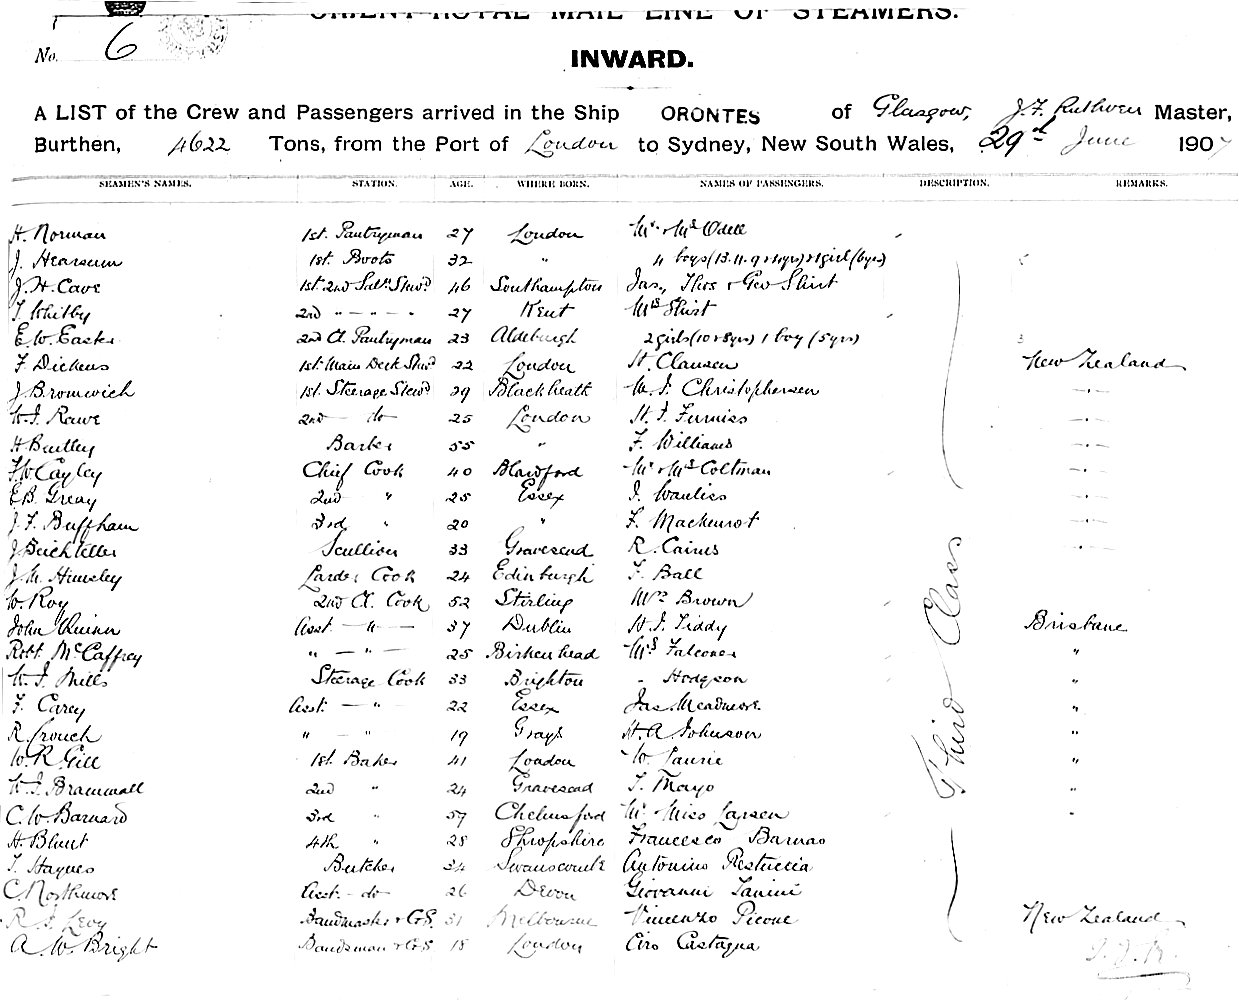 ORIENT-ROYAL MAIL LINE OF STEAMERS.
No. 6
INWARD.
A LIST of the Crew and Passengers arrived in the Ship ORONTES of Glasgow, J. F. Ruthven Master,
Burthen, 4622 Tons, from the Port of London to Sydney, New South Wales, 29th June 1907
SEAMEN'S NAMES. STATION. AGE. WHERE BORN. NAMES OF PASSENGERS. DESCRIPTION. REMARKS.
H. Norman 1st. Pantryman 27 London Mr. & Mrs Odell
J. Hearsum 1st. Boots 32 " 4 boys (13. 11. 9 & 4yrs) & 1 girl (6yrs)
J. H. Cave 1st. 2nd Saln. Stwd. 46 Southampton Jas, Thos & Geo Skirt
T. Whitby 2nd " 27 Kent Mrs Skirt
E. W. 2nd Cl. Pantryman 23 Aldeburgh 2 girls (10 & 8yrs) 1 boy (5yrs)
F. Dickens 1st. Main Deck Stwd 22 London H. Clausen New Zealand
J. Bromwich 1st. Steerage Stewd 29 Blackheath W. J. Christophersen "
W. J. Rawe 2nd do 25 London H. J. Furniss "
H. Bailley Barber 55 " F. Williams "
F. W. Cayley Chief Cook 40 Blandford Mr. & Mrs Coltman "
E. B. Greay 2nd " 25 Essex J. "
J. F. Buffham 3rd " 20 " F. "
J. Scullion 33 Gravesend R. Cairns "
J. M. Larder Cook 24 Edinburgh F. Ball
W. Roy 2nd Cl. Cook 52 Stirling Mrs Brown
John Quinn Asst. " 37 Dublin H. J. Liddy Brisbane
Robt. McCaffrey " " 25 Birkenhead Mrs Falconer "
W. J. Mills Steerage Cook 33 Brighton " Hodgson "
F. Carey Asst. " 22 Essex Jas. Meadmore "
R. Crouch " " 19 Grays H. A. Johnson "
W. R. Gill 1st Baker 41 London W. Laurie "
W. J. Brammall 2nd " 24 Gravesend T. Mayo "
C. W. Barnard 3rd " 57 Chelmsford Mr. Miss Larsen "
H. Blunt 4th " 28 Shropshire Francesco Barnao
T. Haynes Butcher 34 Swanscombe Antonino Restuccia
C. Northmore Asst. do 26 Devon Giovanni Zanini
R. J. Levy Bandmaster & G.S. 31 Melbourne Vincenzo Picone New Zealand
A. W. Bright Bandsman & G.S 18 London Ciro Castagna
Third Class